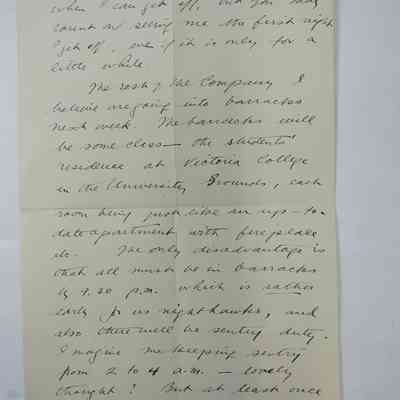 when I can get off, but you may
count on seeing me the first night
I get off, even if it is only for a
little while
The rest of the Company I
believe are going into barracks
next week. The barracks will
be some class — the students'
residence at Victoria College
in the University Grounds, each
room being just like an up-to-
date apartment with fireplace
etc. The only disadvantage is
that all must be in barracks
by 9.30 p.m. which is rather
early for us nighthawks, and
also there will be sentry duty.
Imagine me keeping sentry
from 2 to 4 a.m. — lovely
thought! But at least once